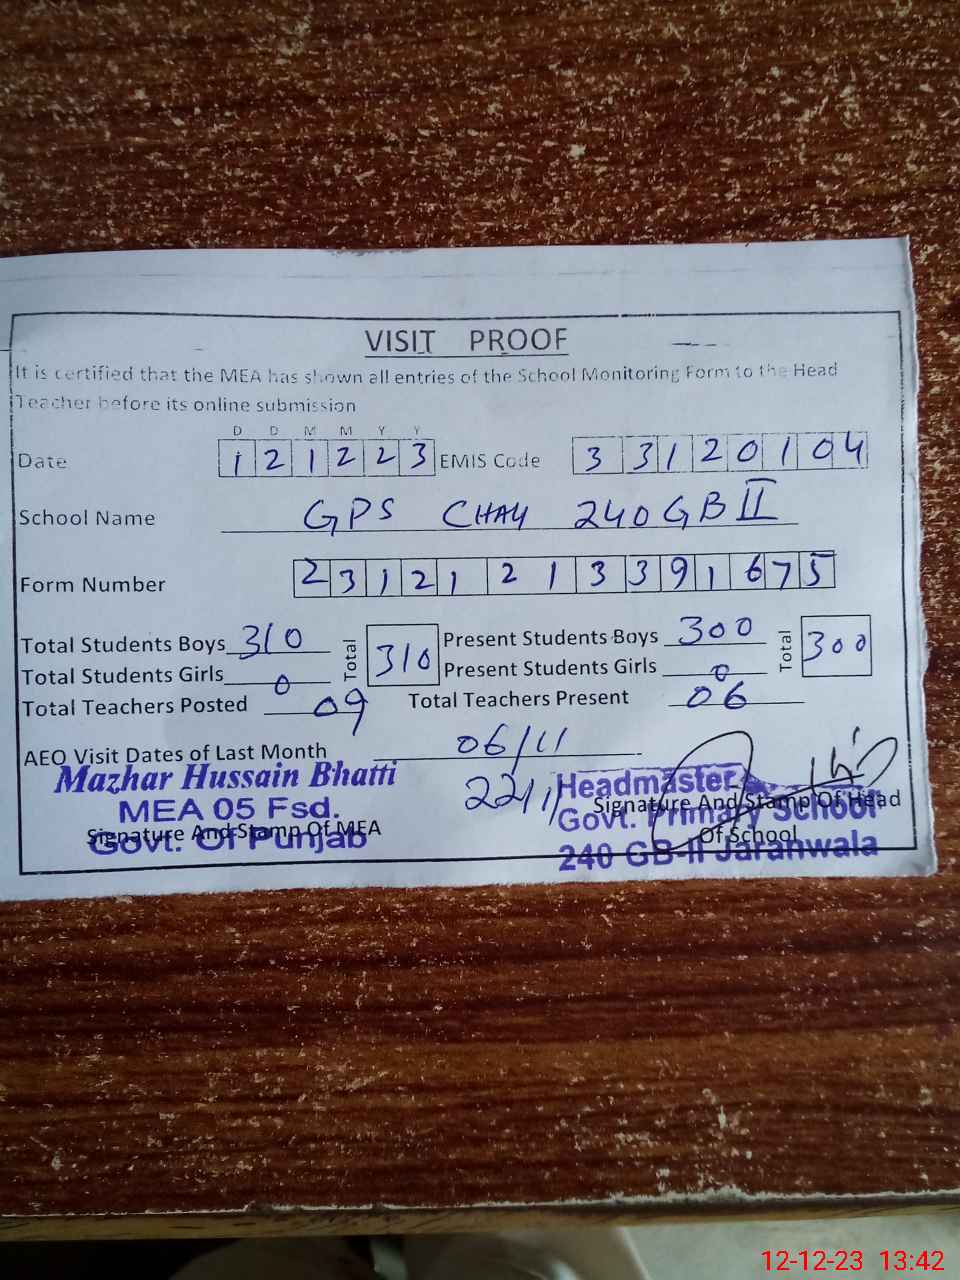 VISIT PROOF
It is certified that the MEA has shown all entries of the School Monitoring Form to the Head
Teacher before its online submission
D D M M Y Y
Date 1 2 1 2 2 3 EMIS Code 3 3 1 2 0 1 0 4
School Name GPS CHAK 240 GB II
Form Number 2 3 1 2 1 2 1 3 3 9 1 6 7 5
Total Students Boys 310 Total 310 Present Students Boys 300 Total 300
Total Students Girls 0 Present Students Girls 0
Total Teachers Posted 09 Total Teachers Present 06
AEO Visit Dates of Last Month 06/11
22/11
Mazhar Hussain Bhatti
MEA 05 Fsd.
Govt. Of Punjab
Signature And Stamp Of MEA
Headmaster
Govt. Primary School
240 GB-II Jaranwala
Signature And Stamp Of Head
Of School
12-12-23 13:42